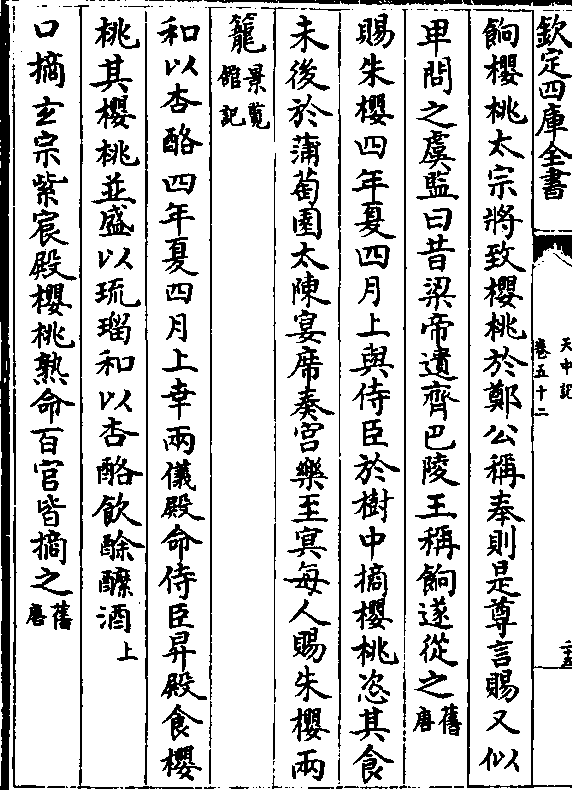 欽定四庫全書
天中記
卷五十二
餉櫻桃太宗將致櫻桃於鄭公稱奉則是尊言賜又似
卑問之虞監曰昔梁帝遺齊巴陵王稱餉遂從之舊唐
賜朱櫻四年夏四月上與侍臣於樹中摘櫻桃恣其食
未後於蒲萄園大陳宴席奏宮樂至㝠每人賜朱櫻兩
籠景龍館記
和以杏酪四年夏四月上幸兩儀殿命侍臣昇殿食櫻
桃其櫻桃並盛以琉璃和以杏酪飲酴醿酒上
口摘玄宗紫宸殿櫻桃熟命百官皆摘之舊唐